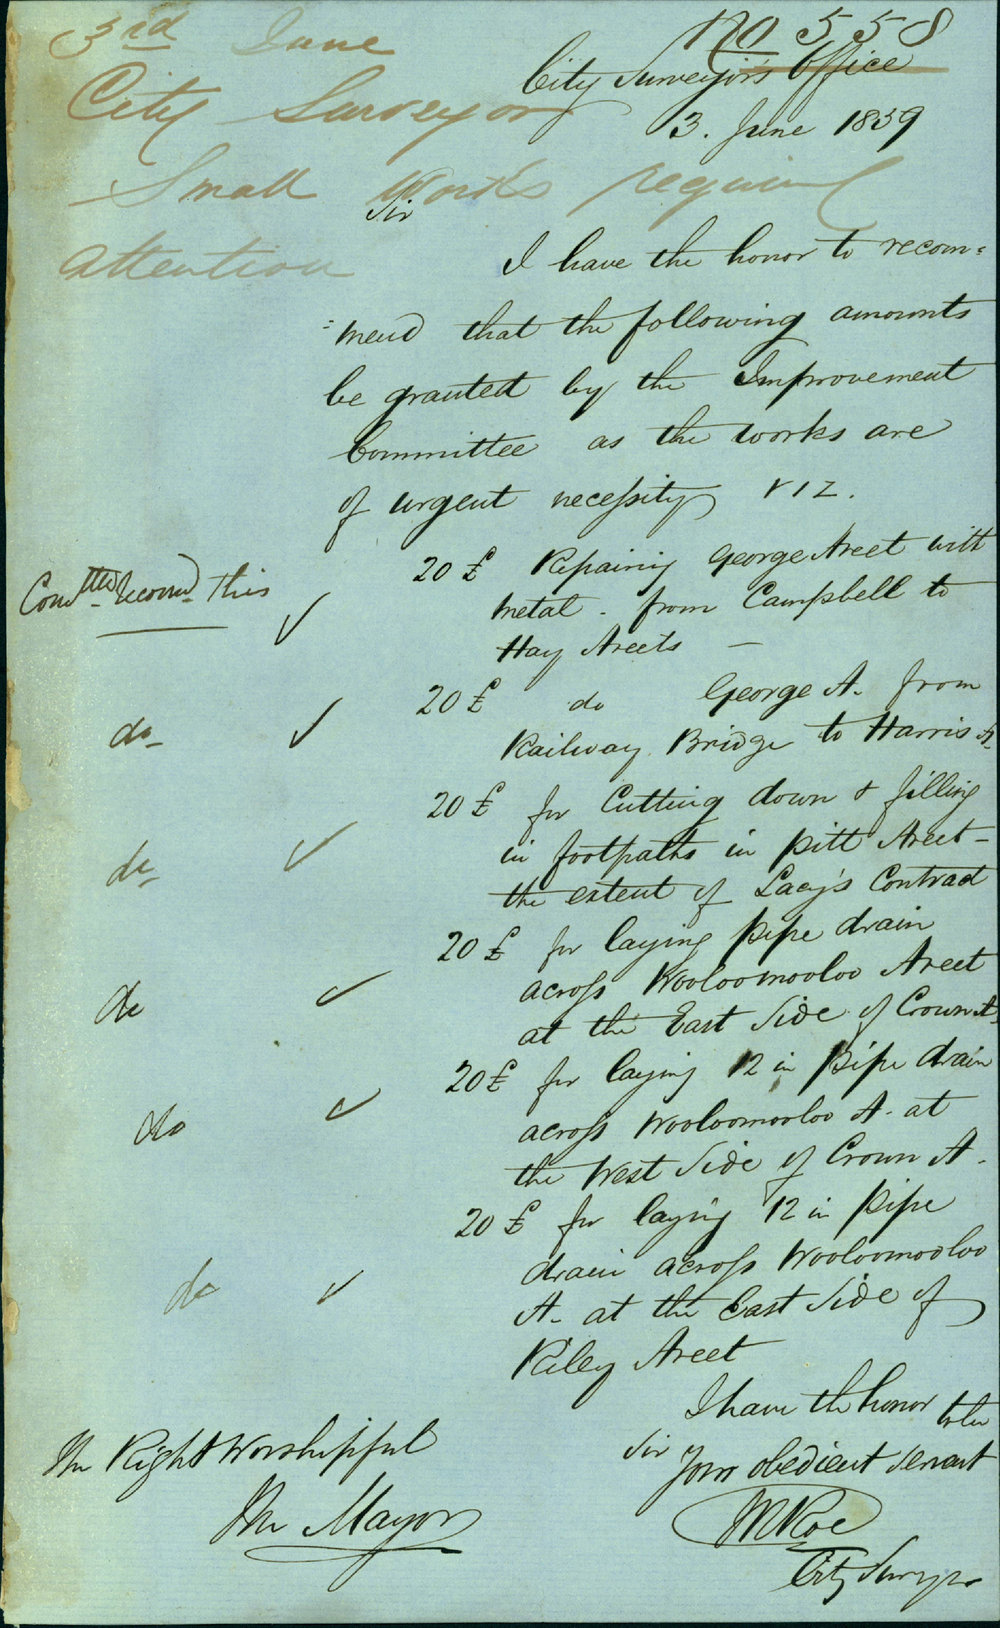 No 558
3rd June
City Surveyor
Small Works requiring
attention
City Surveyor's Office
3. June 1859
Sir
I have the honor to recom=
=mend that the following amounts
be granted by the Improvement
Committee as the works are
of urgent necessity VIZ.
Comttee recomd this
20 £ Repairing George Street with
metal - from Campbell to
Hay Streets —
do 20 £ do George St. from
Railway Bridge to Harris St.
do 20 £ for Cutting down & filling
in footpaths in Pitt Street -
the extent of Lacy's Contract
do 20 £ for laying pipe drain
across Wooloomooloo Street
at the East Side of Crown St.
do 20 £ for laying 12 in pipe drain
across Wooloomooloo St. at
the West Side of Crown St.
do 20 £ for laying 12 in pipe
drain across Wooloomooloo
St. at the East Side of
Riley Street
I have the honor to be
Sir
Your obedient Servant
W Roe
City Surveyor
The Right Worshipful
The Mayor